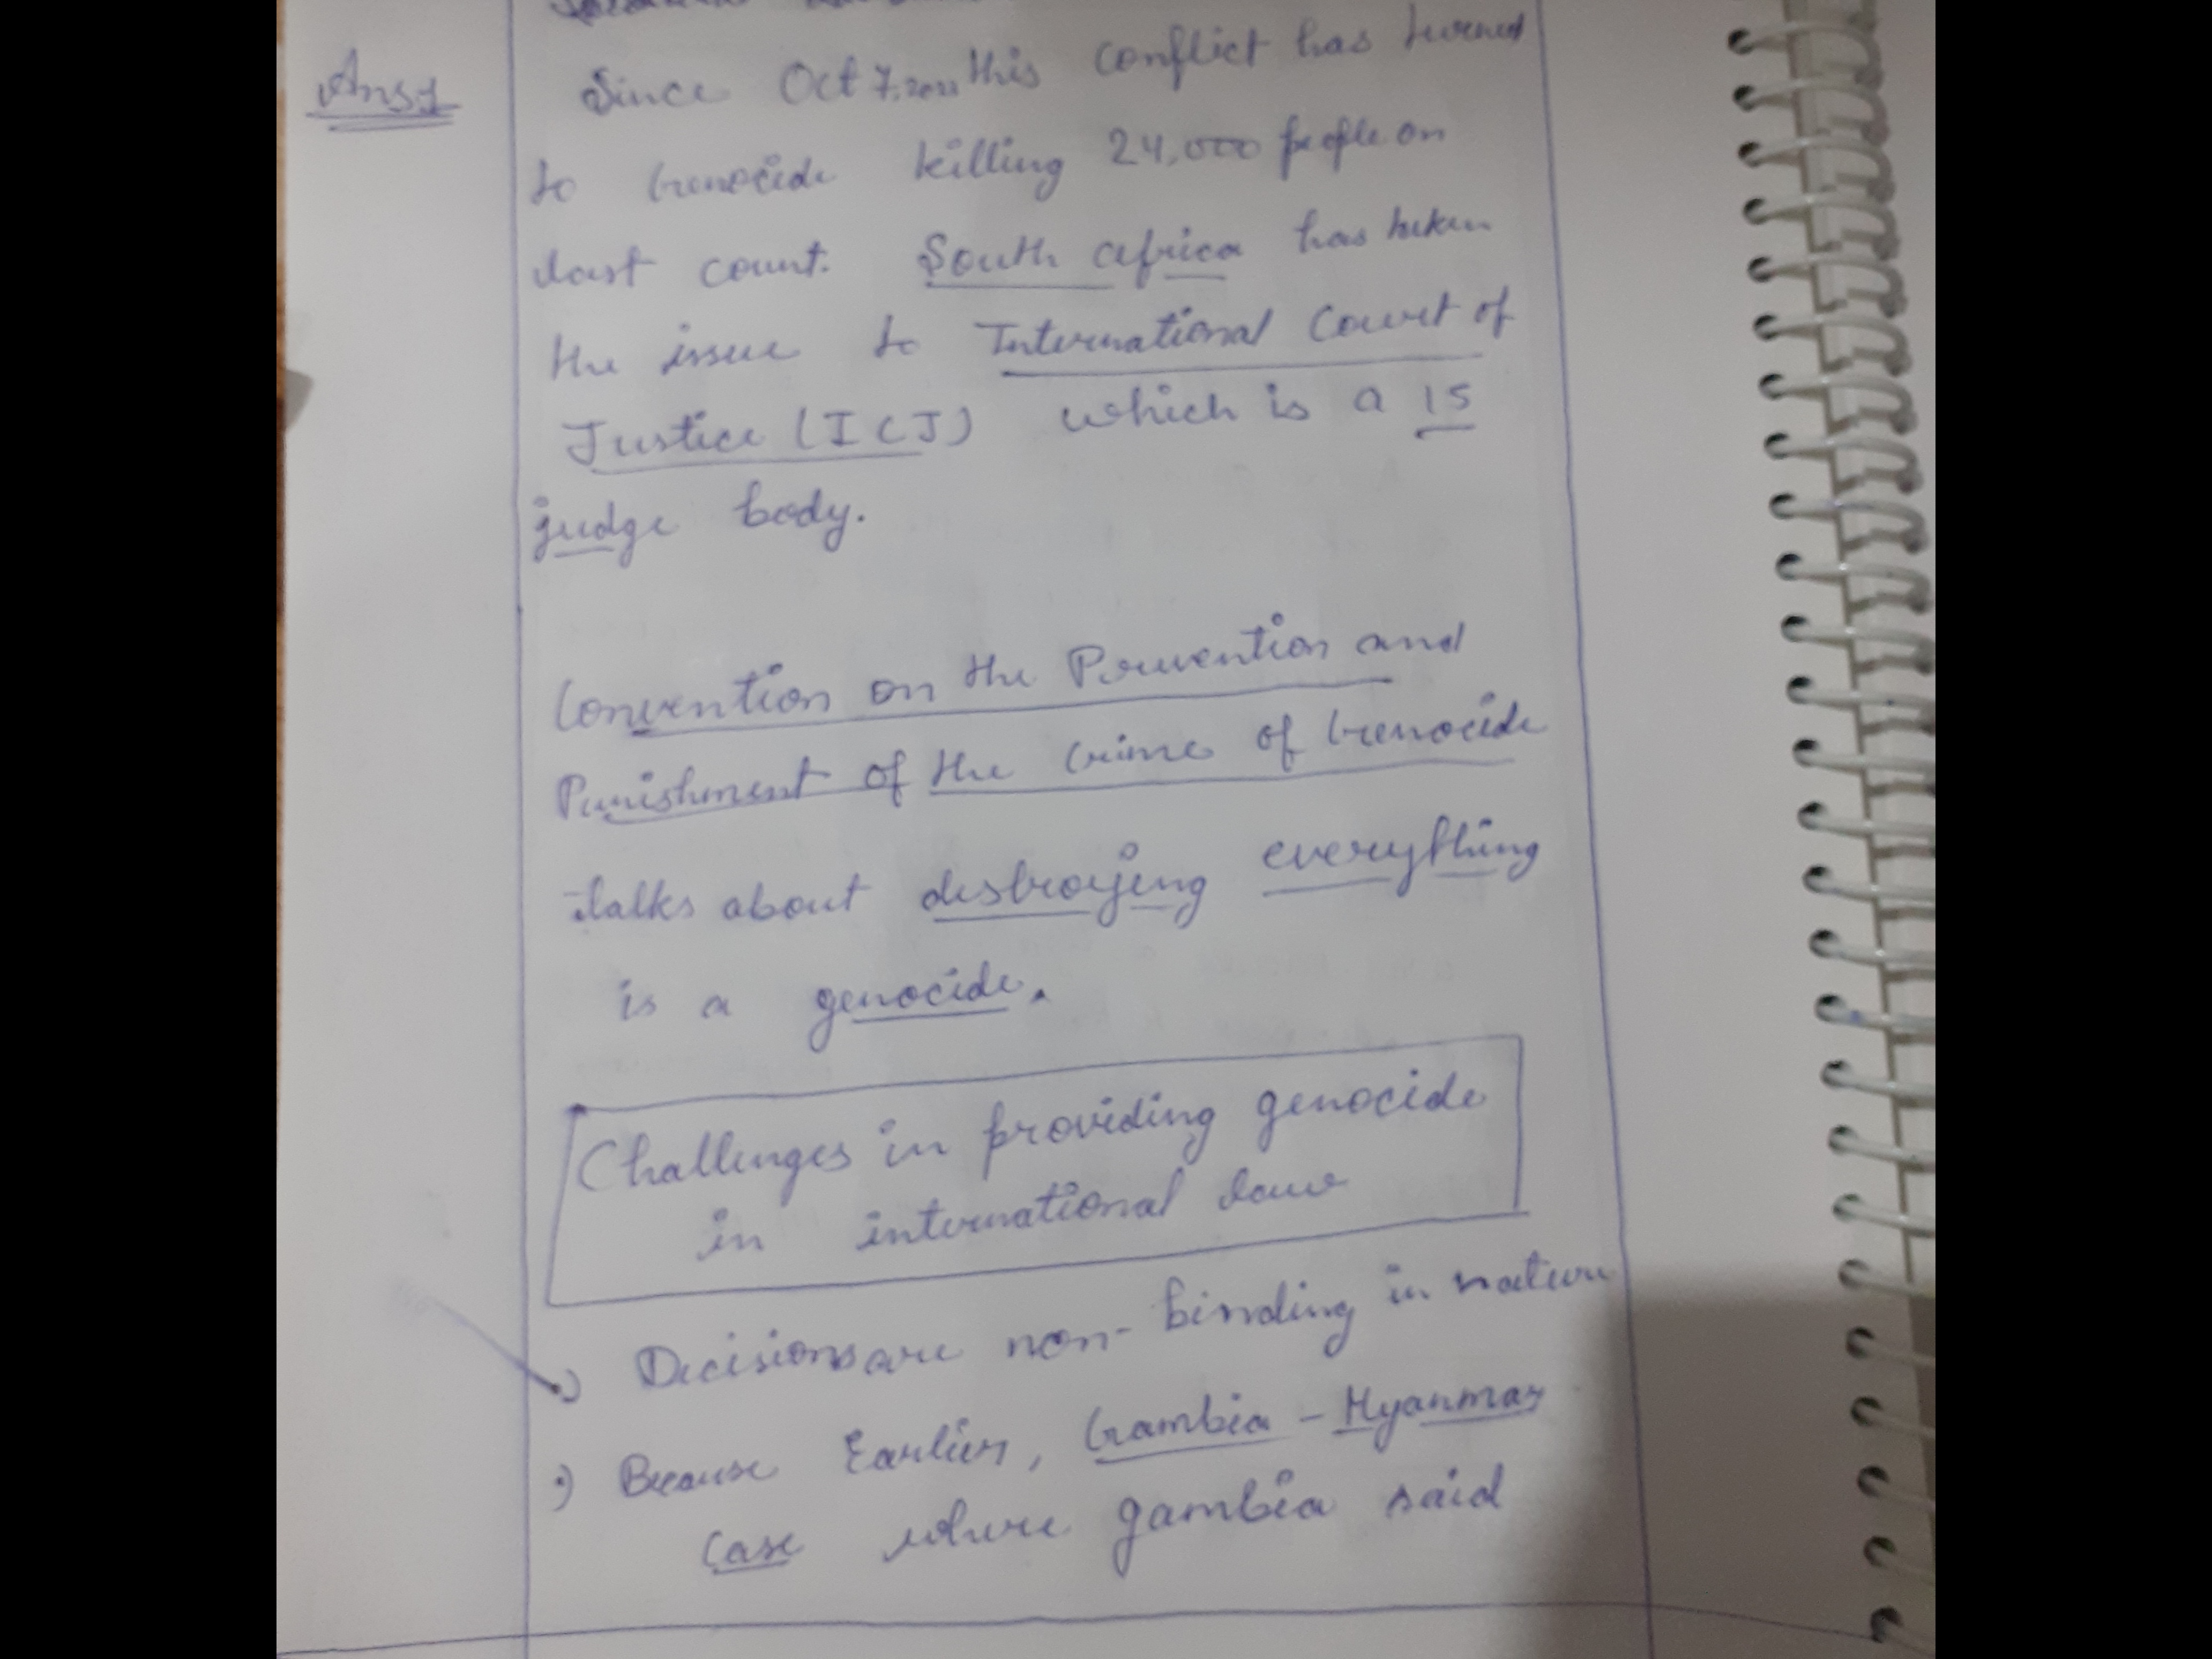 Ans1
Since Oct 7, this conflict has turned
to Genocide killing 24,000 people on
last count. South africa has taken
the issue to International Court of
Justice (ICJ) which is a 15
judge body.
Convention on the Prevention and
Punishment of the Crime of Genocide
talks about destroying everything
is a genocide.
Challenges in providing genocide
in international law
Decisions are non-binding in nature
Because Earlier, Gambia - Myanmar
Case where gambia said